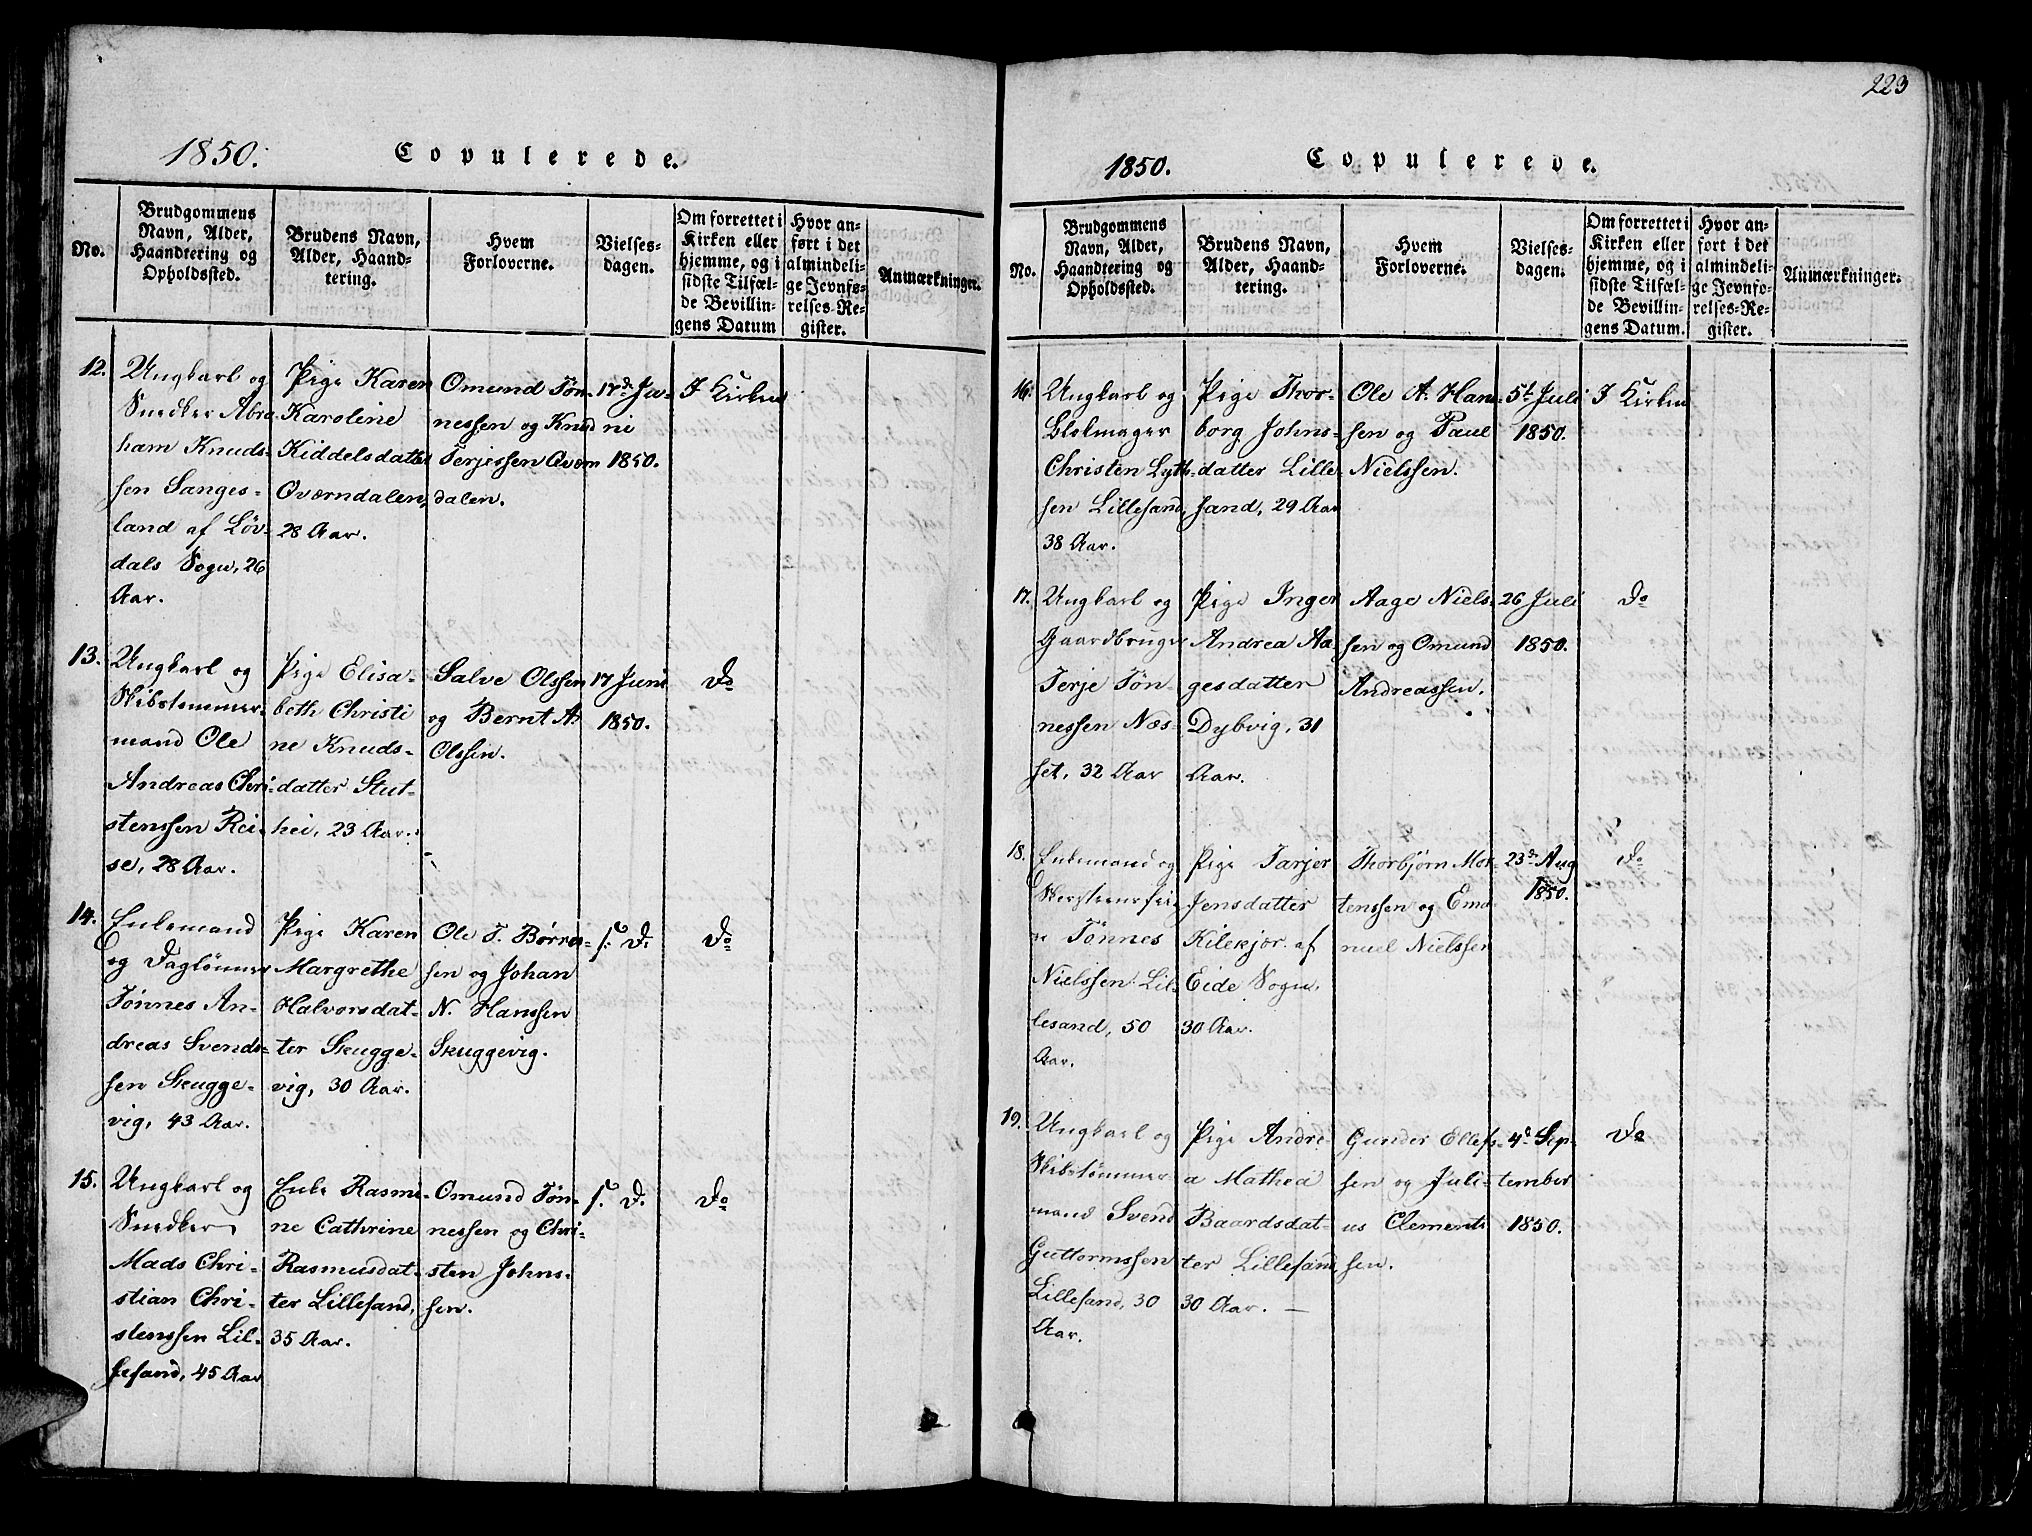 1850.
Copulerede.
No.
Brudgommens
Navn, Alder,
Haandtering og
Opholdssted.
Brudens Navn,
Alder, Haand-
tering.
Hvem
Forloverne.
Vielses-
dagen.
Om forrettet i
Kirken eller
hjemme, og i
sidste Tilfæl-
de Bevillin-
gens Datum
Hvor an-
ført i det
almindeli-
ge Jevnfø-
relses-Re-
gister.
Anmærkninger.
12.
Ungkarl og
Snedker Abra-
ham Knuds-
sen Sanges-
land af Løv-
dals Sogn, 26
Aar.
Pige Karen
Karoline
Kiddelsdatter
Oværndalen,
28 Aar.
Omund Tøn-
nessen og Knud
Terjessen
dalen.
17de Ju-
ni
1850.
I Kirken
13.
Ungkarl og
Skibstømmer-
mand Ole
Andreas Chri-
stenssen Rei-
se, 28 Aar.
Pige Elisa-
beth Christi
ne Knuds-
datter Stut-
hei, 23 Aar.
Salve Olssen
og Bernt A.
Olssen.
17 Juni
1850.
Do
14.
Enkemand
og Daglønner
Tønnes An-
dreas Svends-
sen Skugge-
vig, 43 Aar.
Pige Karen
Margrethe
Halvorsdat-
ter Skugge-
vig, 30 Aar.
Ole T. Børre-
sen og Johan
N. Hanssen
Skuggevig.
s. D.
Do
15.
Ungkarl og
Snedker
Mads Chri-
stian Chri-
stenssen Lil-
lesand, 45 Aar
Enke Rasmi-
ne Cathrine
Rasmusdat-
ter Lillesand,
35 Aar.
Omund Tøn-
nessen og Chri-
sten Johns-
sen.
s. D.
Do
223
1850.
Copulerede.
No.
Brudgommens
Navn, Alder,
Haandtering og
Opholdssted.
Brudens Navn,
Alder, Haand-
tering.
Hvem
Forloverne.
Vielses-
dagen.
Om forrettet i
Kirken eller
hjemme, og i
sidste Tilfæl-
de Bevillin-
gens Datum.
Hvor an-
ført i det
almindeli-
ge Jevnfø-
relses-Re-
gister.
Anmærkninger.
16.
Ungkarl og
Blokmager
Christen Lyth-
sen Lillesand,
38 Aar.
Pige Thor-
borg Johns-
datter Lille-
sand, 29 Aar
Ole A. Hans-
sen og Paul
Nielssen.
5t Juli
1850.
I Kirken
17.
Ungkarl og
Gaardbruger
Terje Tøn-
nessen Næs-
set, 32 Aar
Pige Inger
Andrea Aa-
gesdatter
Dybvig, 31
Aar.
Aage Niels-
sen og Omund
Andreassen.
26 Juli
1850.
Do
18.
Enkemand og
Skorsteensfei
er Tønnes
Nielssen Lil-
lesand, 50
Aar.
Pige Tarjer
Jensdatter
Kilekjor. af
Eide Sogn,
30 Aar.
Thorbjørn Mor-
tenssen og Ema
nuel Nielssen
23de Aug
1850.
Do
19.
Ungkarl og
Skibstømmer
mand Svend
Guttormssen
Lillesand, 30
Aar.
Pige Andre
a Mathea
Baardsdat-
ter Lillesand,
30 Aar. —
Gunder Ellefs-
sen og Juli-
us Clements
sen.
4d Sep-
tember
1850.
Do